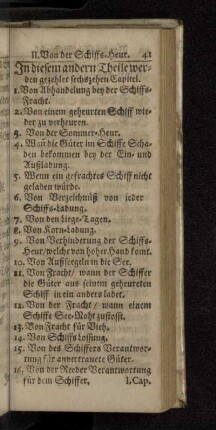 II. Von der Schiffs-Heur. 41
In diesem andern Theile wer-
den gezehlet sechszehen Capitel.
1. Von Abhandelung bey der Schiffs-
Fracht.
2. Von einem geheurten Schiff wie-
der zu verheuren.
3. Von der Sommer-Heur.
4. Wan die Güter im Schiffe Scha-
den bekommen bey der Ein- und
Außladung.
5. Wenn ein gefrachtes Schiff nicht
geladen würde.
6. Von Verzeichnüß von jeder
Schiffs-Ladung.
7. Von den Liege-Tagen.
8. Von Korn-Ladung.
9. Von Verhinderung der Schiffs-
Heur/welche von hoher Hand komt.
10. Von Außsegelen in die See.
11. Von Fracht/ wann der Schiffer
die Güter aus seinem geheureten
Schiff in ein anders ladet.
12. Von der Fracht/ wann einem
Schiffe See-Noht zustosst.
13. Von Fracht für Vieh.
14. Von Schiffs Lossung.
15. Von des Schiffers Verantwor-
tung für anvertrauete Güter.
16. Von der Reeder Verantwortung
für dem Schiffer. I. Cap.